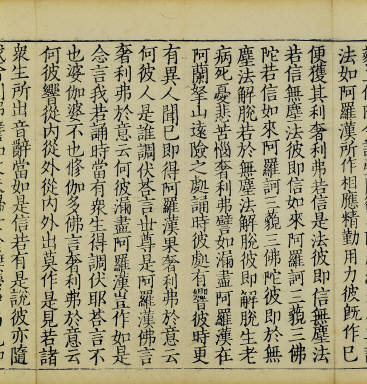 法如阿羅漢所作相應精勤用力彼旣作已
便獲其利奢利弗若信是法彼即信無塵法
若信無塵法彼即信如來阿羅訶三藐三佛
陀若信如來阿羅訶三藐三佛陀彼即於無
塵法解脫若於無塵法解脫彼即解脫生老
病死憂悲苦惱奢利弗譬如漏盡阿羅漢在
阿蘭拏山遠險之處誦時彼處有響彼時更
有異人聞已即得阿羅漢果奢利弗於意云
何彼人是誰調伏荅言世尊是阿羅漢佛言
奢利弗於意云何彼漏盡阿羅漢豈作如是
念言我若誦時當有衆生得調伏耶荅言不
也婆伽婆不也修伽多佛言奢利弗於意云
何彼響從內從外從內外出莫作是見若諸
衆生所出音辭當如是信若有是說彼亦隨